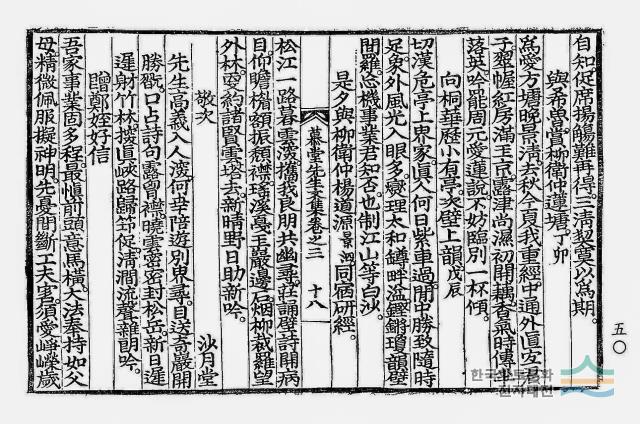 自知促席揚觴難再得三淸契莫以爲期
與希魯賞柳衛仲蓮塘丁卯
爲愛方塘晩景淸去秋今夏我重經中通外直宜君
子翠幄紅房滿玉京露津尙濕初開藕香氣時傳半
落英吟罷周元愛蓮說不妨臨別一杯傾
向桐華歷小有亭次壁上韻戊辰
切漢危亭上界家眞人何日紫車過閒中勝致隨時
足象外風光入眼多燮理太和罇畔溢鏗鏘瓊韻壁
間羅忘機事業君知否也制江山等白沙
是夕與柳衛仲楊道源景泗同宿硏經
慕堂先生文集卷之三 十八
松江一路暮雲濃携我良朋共幽尋莊誦壁詩開病
目仰瞻楣額振頹襟瑤溪戞玉巖邊石烟柳裁羅望
外林更約諸賢雲壑去新晴野日助新吟
敬次 沙月堂
先生高義入人深何幸陪遊別界尋目送奇巖開
勝概口占詩句露曾襟曉雲密密封松岳新日遲
遲射竹林搜直峽路歸筇促淸澗流聲雜朗吟
贈鄭姪好信
吾家事業固多程最愼前頭意馬橫大法奉持如父
母精微佩服擬神明先憂間斷工夫害須愛崢嶸歲
五〇
한국향토문화
전자대전